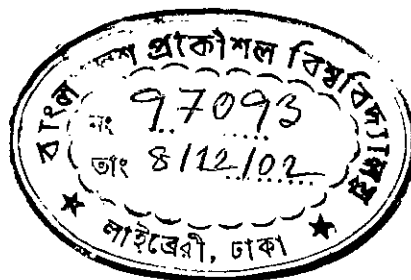 বাংলাদেশ প্রকৌশল বিশ্ববিদ্যালয়
নং 97093
তাং 8/12/02
★ লাইব্রেরী, ঢাকা ★